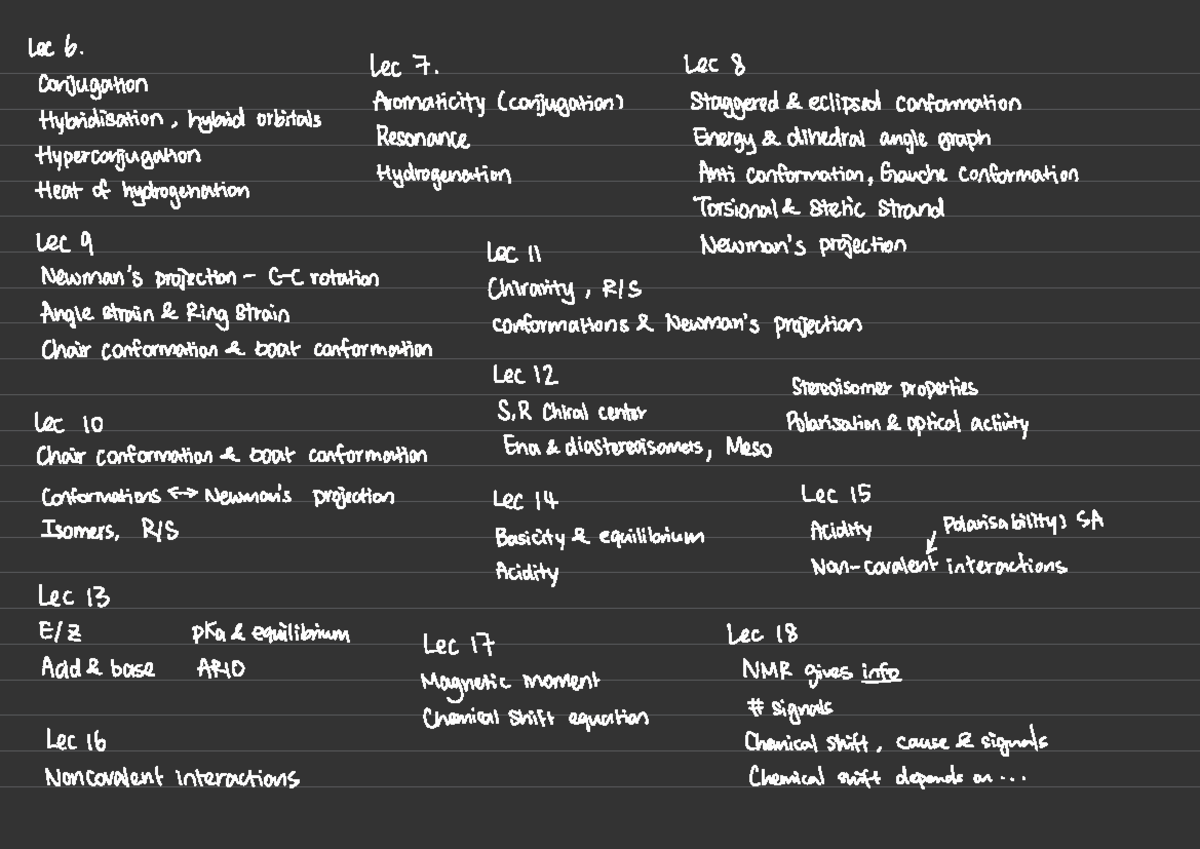 Lec 6.
Conjugation
Hybridisation, hybrid orbitals
Hyperconjugation
Heat of hydrogenation
Lec 7.
Aromaticity (conjugation)
Resonance
Hydrogenation
Lec 8
Staggered & eclipsed conformation
Energy & dihedral angle graph
Anti conformation, Gauche conformation
Torsional & Steric Strand
Newman's projection
Lec 9
Newman's projection - C-C rotation
Angle strain & Ring strain
Chair conformation & boat conformation
Lec 10
Chair conformation & boat conformation
Conformations ↔ Newman's projection
Isomers, R/S
Lec 11
Chirality, R/S
conformations & Newman's projection
Lec 12
S,R Chiral center
Ena & diastereoisomers, Meso
Stereoisomer properties
Polarisation & optical activity
Lec 13
E/Z
Acid & base
pKa & equilibrium
ARIO
Lec 14
Basicity & equilibrium
Acidity
Lec 15
Acidity
Polarisability: SA
Non-covalent interactions
Lec 16
Noncovalent interactions
Lec 17
Magnetic moment
Chemical shift equation
Lec 18
NMR gives info
# signals
Chemical shift, cause & signals
Chemical shift depends on ...